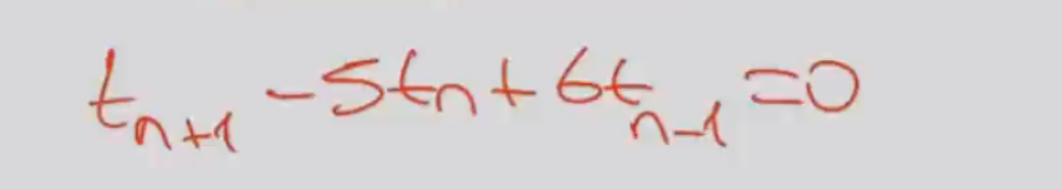 t_{n+1} - 5t_n + 6t_{n-1} = 0